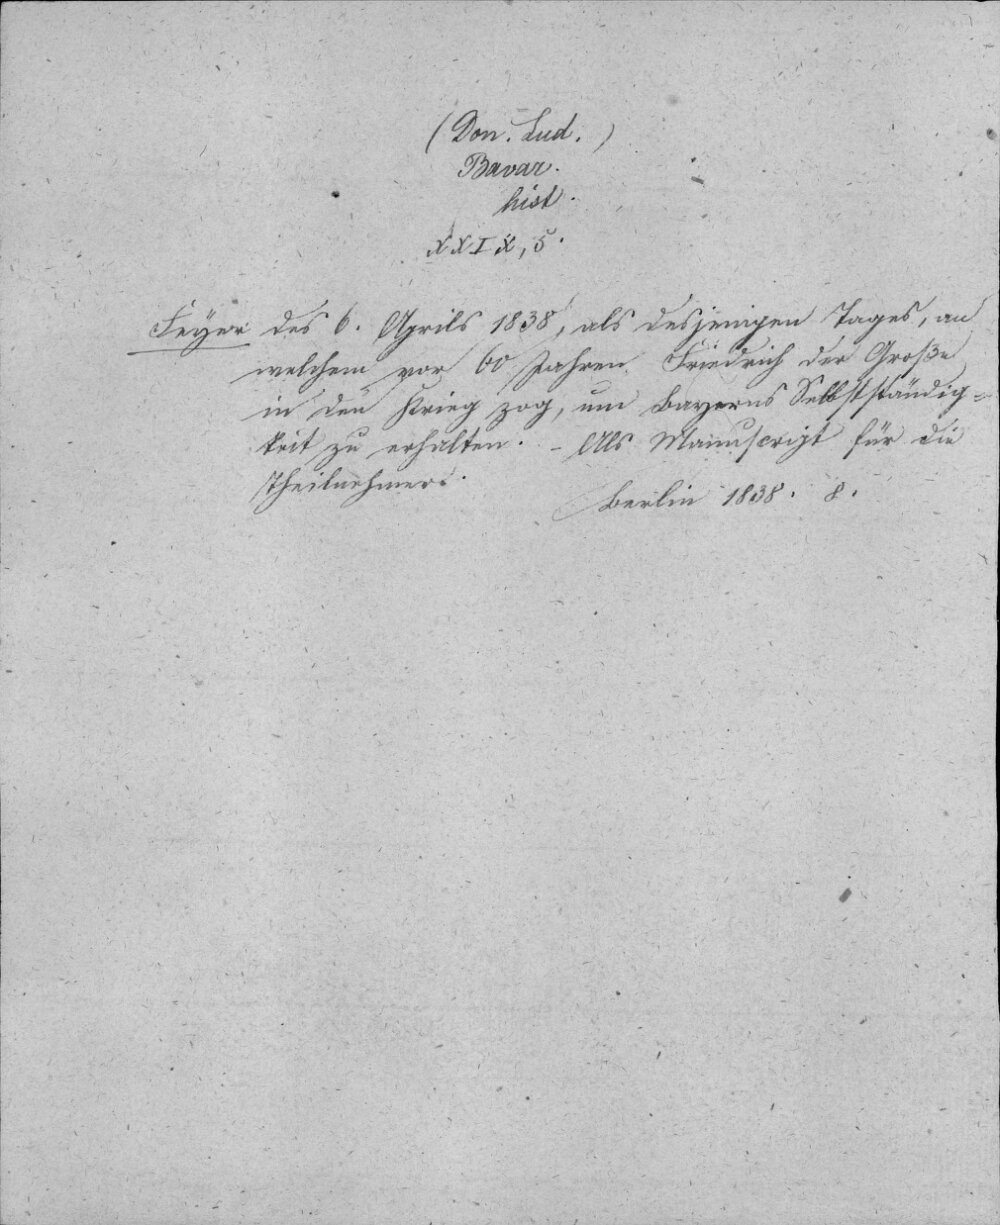 (Don. Lud.)
Bavar.
hist.
XXIX, 5.
Feyer des 6. Aprils 1838, als desjenigen Tages, an
welchem vor 60 Jahren Friedrich der Große
in den Krieg zog, um Bayerns Selbstständig=
keit zu erhalten. - Als Manuscript für die
Theilnehmer.
Berlin 1838. 8.